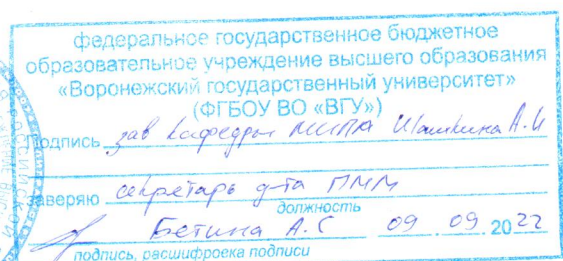 федеральное государственное бюджетное
образовательное учреждение высшего образования
«Воронежский государственный университет»
(ФГБОУ ВО «ВГУ»)
Подпись зав кафедры МиПА Шашкина А.И
заверяю секретарь ф-та ПММ
должность
Бетина А.С 09 09 2022
подпись, расшифровка подписи